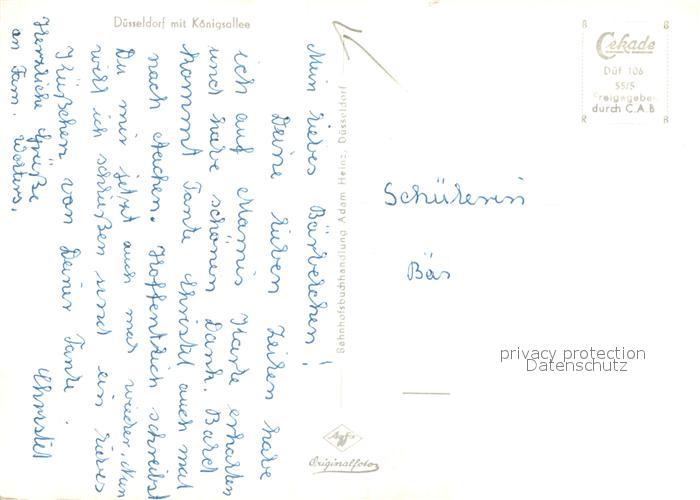 Düsseldorf mit Königsallee
Mein liebes Bärbelchen!
Deine lieben Zeilen habe
ich auf Mamis Karte erhalten
und habe schönen Dank. Bald
kommt Tante Christel auch mal
nach Aachen. Hoffentlich schreibst
Du mir jetzt auch mal wieder. Nun
will ich schließen und ein liebes
Küßchen von Deiner Tante
Christel
Herzliche Grüße
an Fam.
Bahnhofsbuchhandlung Adam Heinz, Düsseldorf
Agfa
Originalfoto
Cekade
Düf 106
55/5
Freigegeben
durch C.A.B
Schülerin
Bär
privacy protection
Datenschutz